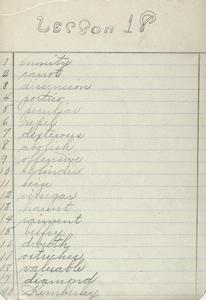 Lesson 18
1 enmity
2 carrot
3 dissension
4 portico
5 peculiar
6 repel
7 dexterous
8 abolish
9 offensive
10 cylinder
11 seige
12 vinegar
13
14 raiment
15 belfry
16
17 ostriches
18 valuable
19 diamond
20